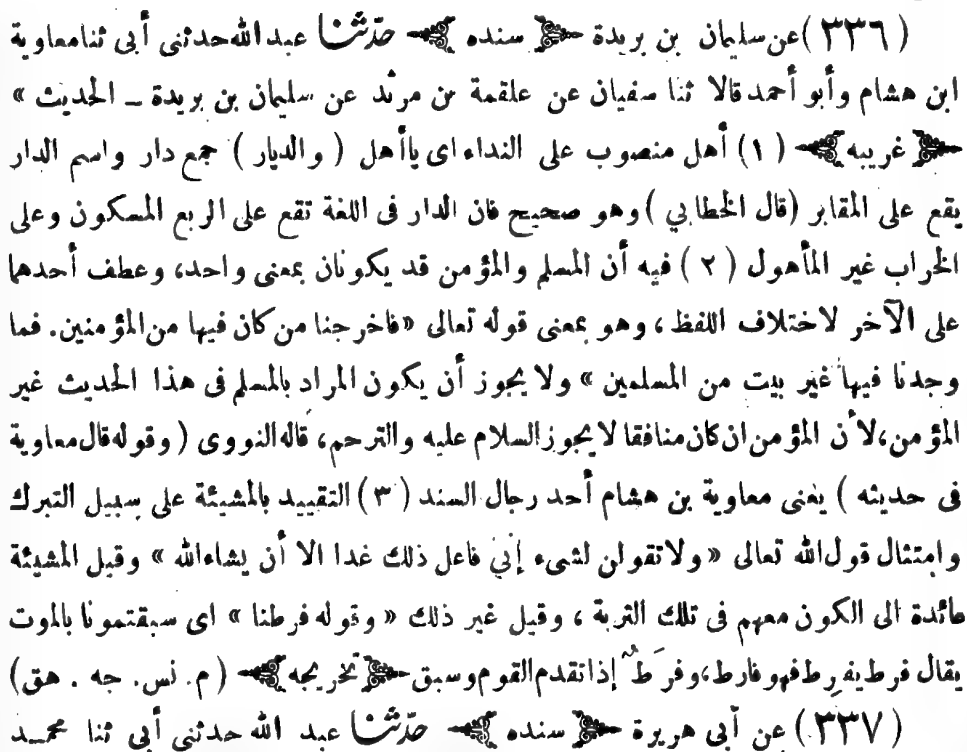 (٣٣٦) عن سليمان بن بريدة ﴿ سنده ﴾ حدّثنا عبد الله حدثنى أبى ثنا معاوية
ابن هشام وأبو أحمد قالا ثنا سفيان عن علقمة بن مرثد عن سليمان بن بريدة ـ الحديث »
﴿ غريبه ﴾ (١) أهل منصوب على النداء اى ياأهل ( والديار ) جمع دار واسم الدار
يقع على المقابر (قال الخطابي ) وهو صحيح فان الدار فى اللغة تقع على الربع المسكون وعلى
الخراب غير المأهول (٢) فيه أن المسلم والمؤمن قد يكونان بمعنى واحد، وعطف أحدهما
على الآخر لاختلاف اللفظ، وهو بمعنى قوله تعالى «فاخرجنا من كان فيها من المؤمنين. فما
وجدنا فيها غير بيت من المسلمين » ولا يجوز أن يكون المراد بالمسلم فى هذا الحديث غير
المؤمن، لأن المؤمن ان كان منافقا لا يجوز السلام عليه والترحم، قاله النووى ( وقوله قال معاوية
فى حديثه ) يعنى معاوية بن هشام أحد رجال السند (٣) التقييد بالمشيئة على سبيل التبرك
وامتثال قول الله تعالى « ولا تقولن لشىء إني فاعل ذلك غدا الا أن يشاء الله » وقيل المشيئة
عائدة الى الكون معهم فى تلك التربة ، وقيل غير ذلك « وقوله فرطنا » اى سبقتمونا بالموت
يقال فرط يفرِط فهو فارط، وفرَطٌ إذا تقدم القوم وسبق ﴿ تخريجه ﴾ ( م . نس . جه . هق )
(٣٣٧) عن أبى هريرة ﴿ سنده ﴾ حدّثنا عبد الله حدثنى أبى ثنا محمد